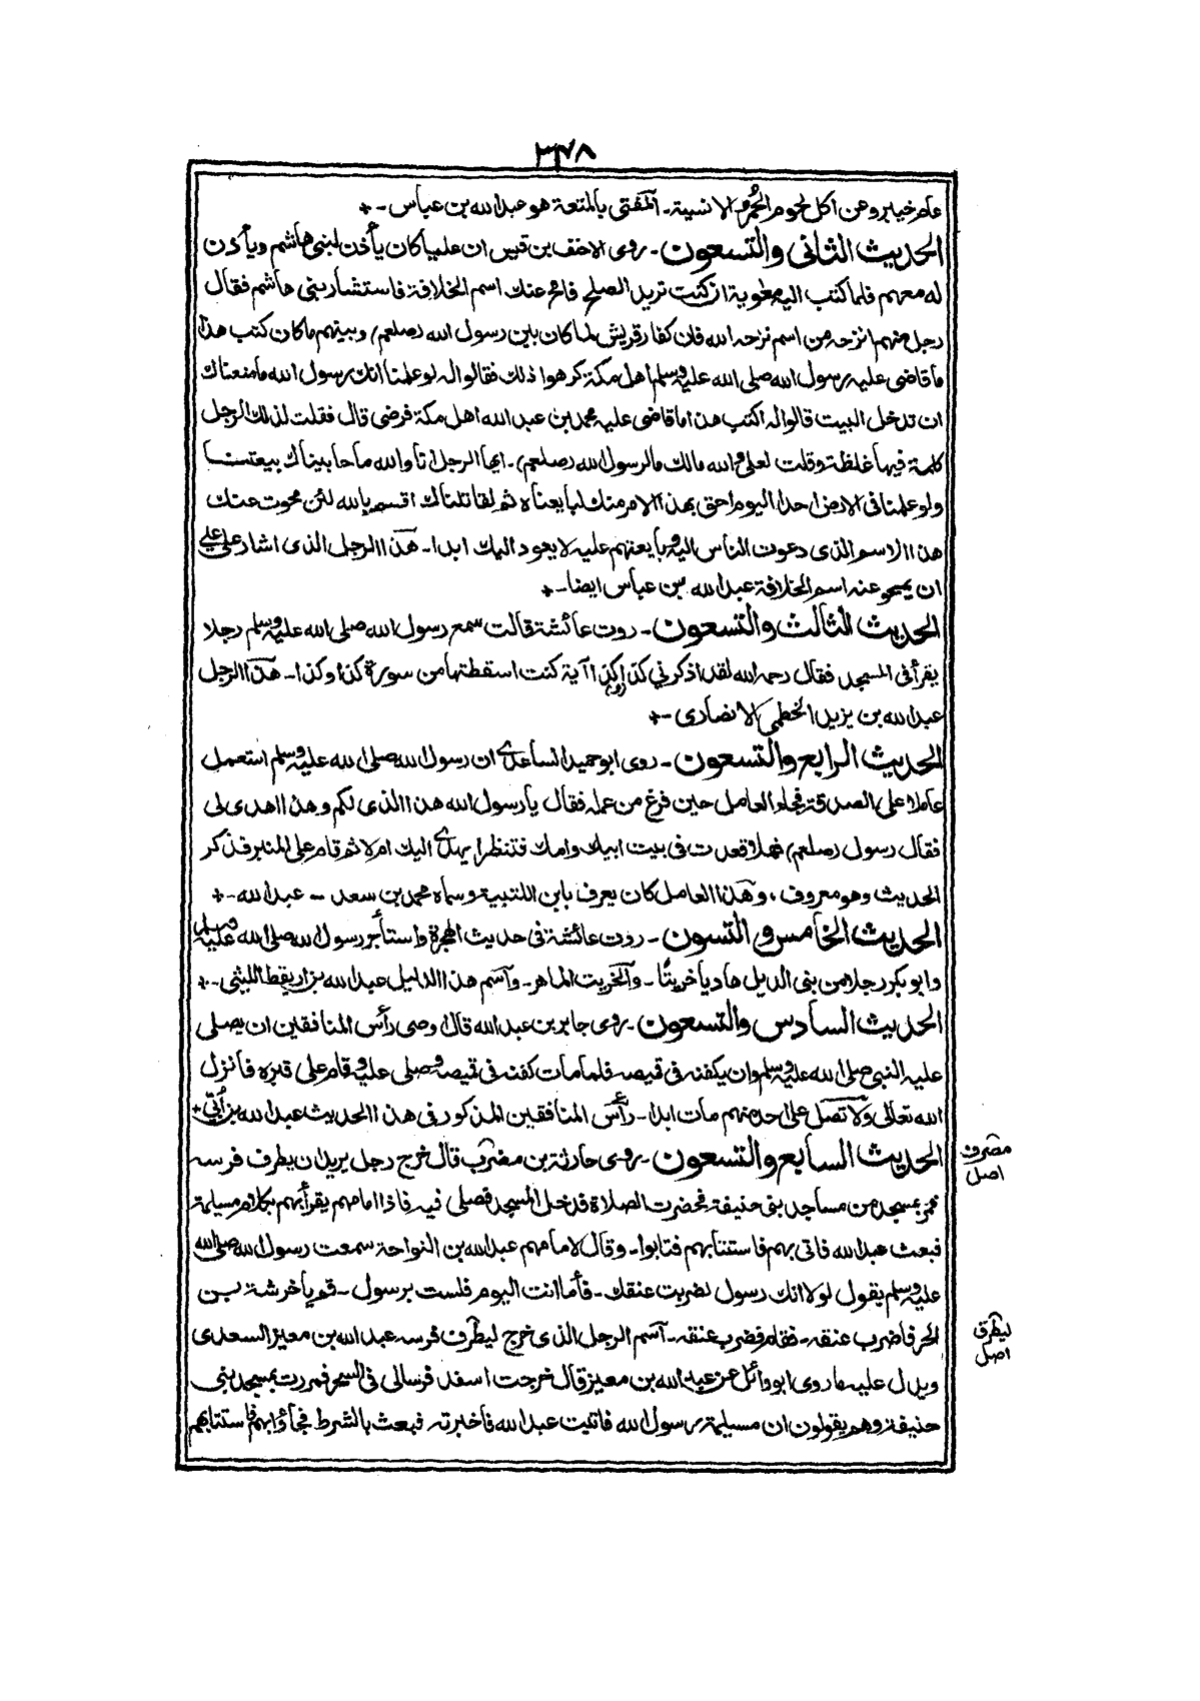 ٣٤٨
عام خيبر وعن اكل لحوم الحُمُر الانسية۔ المفتى بالمتعة هو عبد الله بن عباس۔+
الحديث الثانى والتسعون۔ روى الاحنف بن قيس ان عليا كان يأذن لبنى هاشم ويأذن
له معهم فلما كتب اليه معوية ان كنت تريد الصلح فامح عنك اسم الخلافة فاستشار بنى هاشم فقال
رجل منهم انزحه من اسم نزحه الله فان كفار قريش لما كان بين رسول الله (صلعم) وبينهم ما كان كتب هذا
ما قاضى عليه رسول الله صلى الله عليه وسلم اهل مكة كرهوا ذلك فقالوا له لو علمنا انك رسول الله ما منعناك
ان تدخل البيت قالوا له اكتب هذا ما قاضى عليه محمد بن عبد الله اهل مكة فرضى قال فقلت لذلك الرجل
كلمة فيها غلظة وقلت لعلى والله مالك مالرسول الله (صلعم)۔ ايها الرجل انا والله ما حابيناك ببيعتنا
ولو علمنا فى الارض احدا اليوم احق بهذا الامر منك لبايعناه ثم لقاتلناك اقسم بالله لئن محوت عنك
هذا الاسم الذى دعوت الناس اليه وبايعتهم عليه لا يعود اليك ابدا۔ هذا الرجل الذى اشار على علي
ان يمحو عنه اسم الخلافة عبد الله بن عباس ايضا۔+
الحديث الثالث والتسعون۔ روت عائشة قالت سمع رسول الله صلى الله عليه وسلم رجلا
يقرأ فى المسجد فقال رحمه الله لقد اذكرني كذا وكذا آية كنت اسقطتها من سورة كذا وكذا۔ هذا الرجل
عبد الله بن يزيد الخطمى الانصارى۔+
الحديث الرابع والتسعون۔ روى ابو حميد الساعدے ان رسول الله صلى الله عليه وسلم استعمل
عاملا على الصدقة فجاء العامل حين فرغ من عمله فقال يا رسول الله هذا الذى لكم وهذا اهدى لى
فقال رسول (صلعم) فهلا قعدت فى بيت ابيك وامك فتنظر ا يهدے اليك ام لا ثم قام على المنبر فذكر
الحديث وهو معروف، وهذا العامل كان يعرف بابن اللتبية وسماه محمد بن سعد ـ عبد الله۔+
الحديث الخامس و التسون۔ روت عائشة فى حديث الهجرة واستأجر رسول الله صلى الله عليه وسلم
وابو بكر رجلا من بنى الديل هاديا خريتًا۔ والخريت الماهر۔ واسم هذا الدليل عبد الله بن اريقط الليثى۔+
الحديث السادس والتسعون۔ روى جابر بن عبد الله قال اوصى رأس المنافقين ان يصلى
عليه النبى صلى الله عليه وسلم وان يكفنه فى قميصه فلما مات كفنه فى قميصه وصلى عليه وقام على قبره فانزل
الله تعالى ولا تصل على احد منهم مات ابدا۔ رأس المنافقين المذكور فى هذا الحديث عبد الله بن أُبَيّ+
الحديث السابع والتسعون۔ روى حارثة بن مضرب قال خرج رجل يريد ان يطرف فرسه
فمر بمسجد من مساجد بنى حنيفة فحضرت الصلاة فدخل المسجد فصلى فيه فاذا امامهم يقرأ بهم بكلام مسيلمة
فبعث عبد الله فاتى بهم فاستتابهم فتابوا۔ وقال لامامهم عبد الله بن النواحة سمعت رسول الله صلى الله
عليه وسلم يقول لولا انك رسول لضربت عنقك۔ فأما انت اليوم فلست برسول۔ قم يا خرشة بن
الحر فاضرب عنقه۔ فقام فضرب عنقه۔ اسم الرجل الذى خرج ليطرف فرسه عبد الله بن معيز السعدى
ويدل عليه ما روى ابو وائل عن عبد الله بن معيز قال خرجت اسفد فرسا لى فى السحر فمررت بمسجد بنى
حنيفة وهم يقولون ان مسيلمة رسول الله فاتيت عبد الله فاخبرته فبعث بالشرط فجاؤا بهم فاستتابهم
مضرف
اصل
ليطرق
اصل